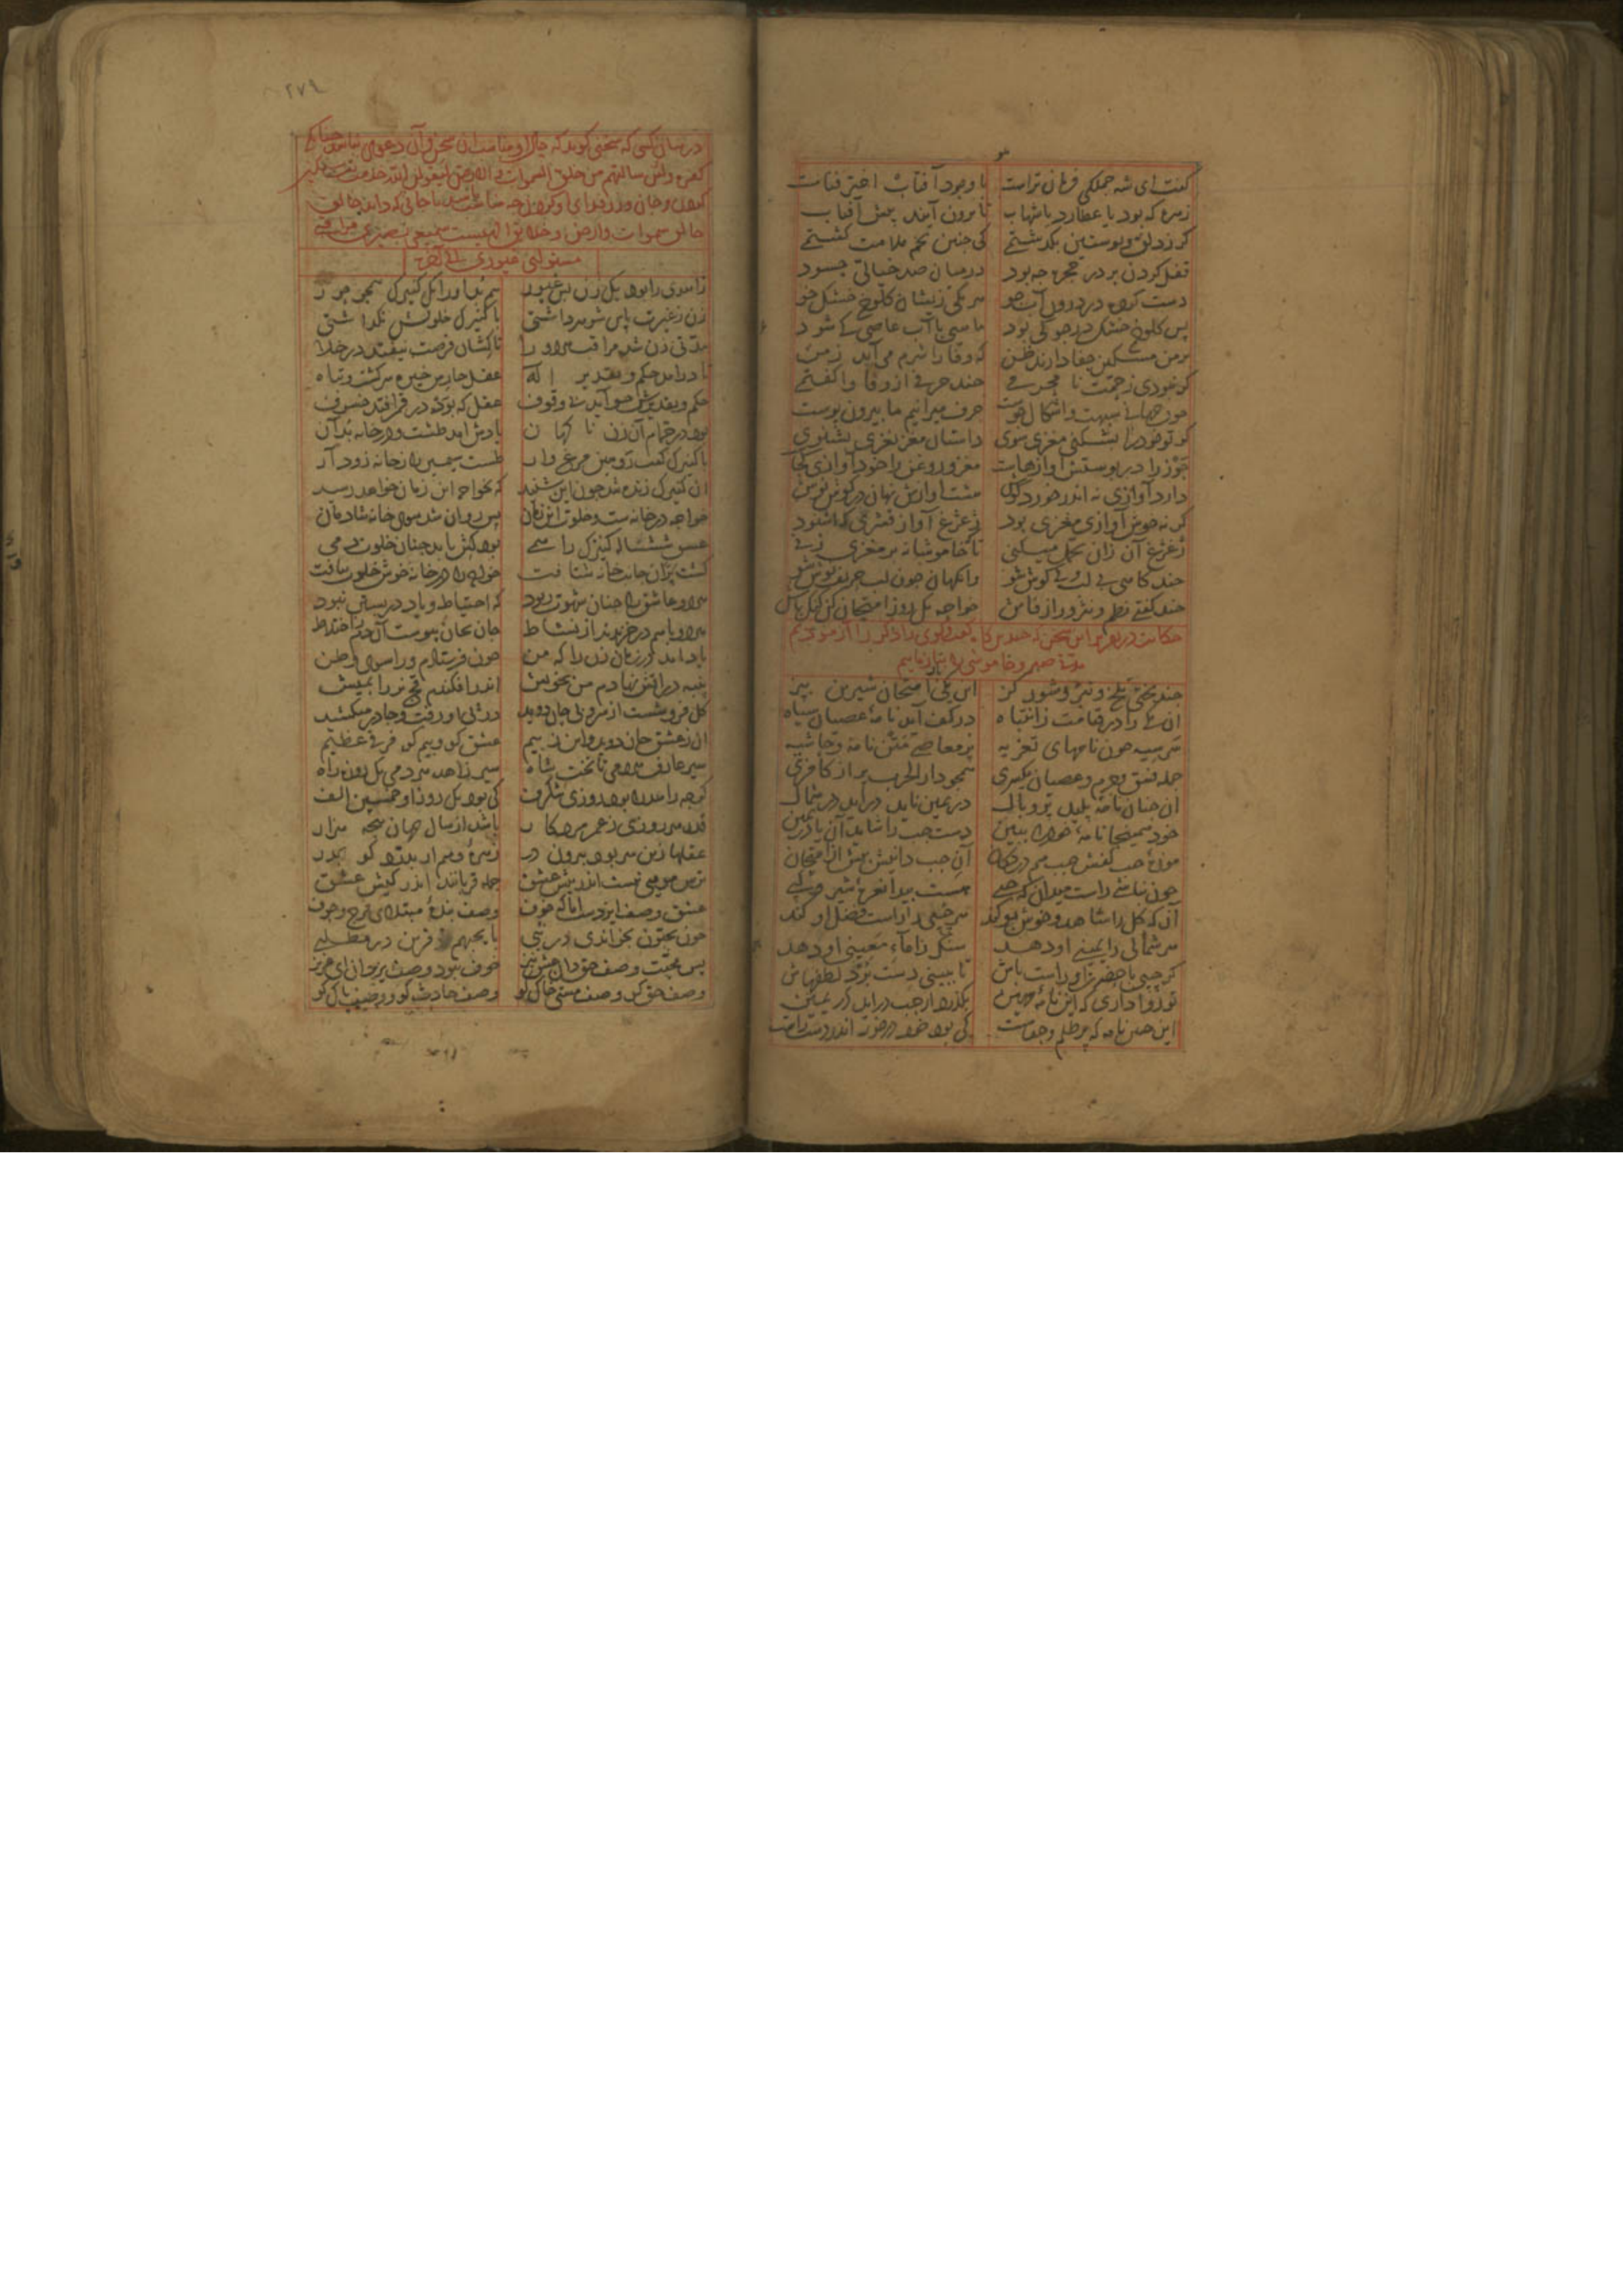 گفت ای شه جملگی فرمان تراست با وجود آفتاب اختر فناست
زهره که بود یا عطارد یا شهاب تا برون آیند پیش آفتاب
گر ز دلق و پوستین بگذشتمی کی چنین تخم ملامت کشتمی
قفل کردن بر در حجره چه بود در میان صد خیالی حسود
دست کرده در درون آب جو هر یکی زیشان کلوخ خشک جو
پس کلوخ خشک در جو کی بود ماهی با آب عاصی کی شود
بر من مسکین جفا دارند ظن که وفا را شرم می آید ز من
گر نبودی زحمت نا محرمی چند حرفی از وفا وا گفتمی
چون جهانی شبهت و اشکال جوست حرف میرانیم ما بیرون پوست
گر تو خود را بشکنی مغزی شوی داستان مغز نغزی بشنوی
جوز را در پوستش آوازهاست مغز و روغن را خود آوازی کجاست
دارد آوازی نه اندر خورد گوش هست آوازش نهان در گوش نوش
گر نه خوش آوازی مغزی بود ژغژغ آواز قشری که شنود
ژغژغ آن زان تحمل میکنی تا که خاموشانه بر مغزی زنی
چند گاهی بی لب و بی گوش شو وانگهان چون لب حریف نوش شو
چند گفتی نظم و نثر و راز فاش خواجه یک روز امتحان کن گنگ باش
حکایت در تقریر این سخن که چندین گاه گفت و گوی را آزمودیم
مدتی صبر و خاموشی را بیازماییم
چند پختی تلخ و تیز و شور گز این یکی امتحان شیرین بپز
آن یکی را در قیامت ز انتباه در کف آید نامه عصیان سیاه
سر سیه چون نامهای تعزیه پر معاصی متن نامه و حاشیه
جمله فسق و جرم و عصیان یکسری همچو دار الحرب پر از کافری
آن چنان نامه پلید پر وبال در یمین ناید در آید در شمال
خود همینجا نامه خود را ببین دست چپ را شاید آن یا در یمین
موزه چپ کفش چپ هم در دکان آن چپ دانیش پیش از امتحان
چون نباشی راست میدان که چپی هست پیدا نعره شیر و کپی
آن که گل را شاهد و خوش بو کند هر چپی را راست فضل او کند
هر شمالی را یمینی او دهد سنگ را ماء معینی او دهد
گر چپی با حضرت او راست باش تا ببینی دست برد لطفهاش
تو روا داری که این نامه مهین بگذرد از چپ در آید در یمین
این چنین نامه که پر ظلم و جفاست کی بود خود در خور اندر دست راست
۲۷۹
در بیان کسی که سخنی گوید که حال او مناسب آن سخن و آن دعوی نباشد چنانکه
کفره ولئن سالتهم من خلق السموات والارض لیقولن الله خدمت بت سنگین
کردن و جان و زر فدای او کردن چه مناسب باشد با جانی که داند خالق
خالق سموات و ارض و خلایق الهیست سمیعی بصیری
مستولی غیوری الی آخره
زاهدی را بود یک زن بس غیور هم بد او را یک کنیزک همچو حور
زن ز غیرت پاس شوهر داشتی با کنیزک خلوتش نگذاشتی
مدتی زن شد مراقب هر دو را تا کشان فرصت نیفتد در خلا
تا در آمد حکم و تقدیر اله عقل حارس خیره سر گشت و تباه
حکم و تقدیرش چو آید بی وقوف عقل که بود در قمر افتد خسوف
بود در حمام آن زن ناگهان یادش آمد طشت و در خانه بد آن
با کنیزک گفت رو هین مرغ وار طشت سیمین را ز خانه زود آر
آن کنیزک زنده شد چون این شنید که بخواجه این زمان خواهد رسید
خواجه در خانه ست و خلوت این زمان پس روان شد سوی خانه شادمان
عشق شش ساله کنیزک را همی بود کش یابد چنان خلوت دمی
گشت پران جانب خانه شتافت خواجه را در خانه خوش خلوت بیافت
هر دو عاشق را چنان شهوت ربود که احتیاط و یاد در بستن نبود
هر دو با هم در خزیدند از نشاط جان بجان پیوست آن دم ز اختلاط
یاد آمد در زمان زن را که من چون فرستادم ورا سوی وطن
پنبه در آتش نهادم من بخویش اندر افکندم قچ نر را بمیش
گل فرو شست از سر و بی جان دوید در پی او رفت و چادر میکشید
آن ز عشق جان دوید و این ز بیم عشق کو و بیم کو فرقی عظیم
سیر عارف هر دمی تا تخت شاه سیر زاهد هر دمی یک روزه راه
گرچه زاهد را بود روزی شگرف کی بود یک روز او خمسین الف
قدر هر روزی ز عمر مرد کار باشد از سال جهان پنجه هزار
عقلها زین سر بود بیرون در زهره وهم ار بدرد گو بدر
ترس مویی نیست اندر پیش عشق جمله قربانند اندر کیش عشق
عشق وصف ایزدست اما که خوف وصف بنده مبتلای فرج و جوف
چون یحبون بخواندی در نبی با یحبهم قرین در مطلبی
پس محبت وصف حق دان عشق نیز خوف نبود وصف یزدان ای عزیز
وصف حق کو وصف مشتی خاک کو وصف حادث کو و وصف پاک کو